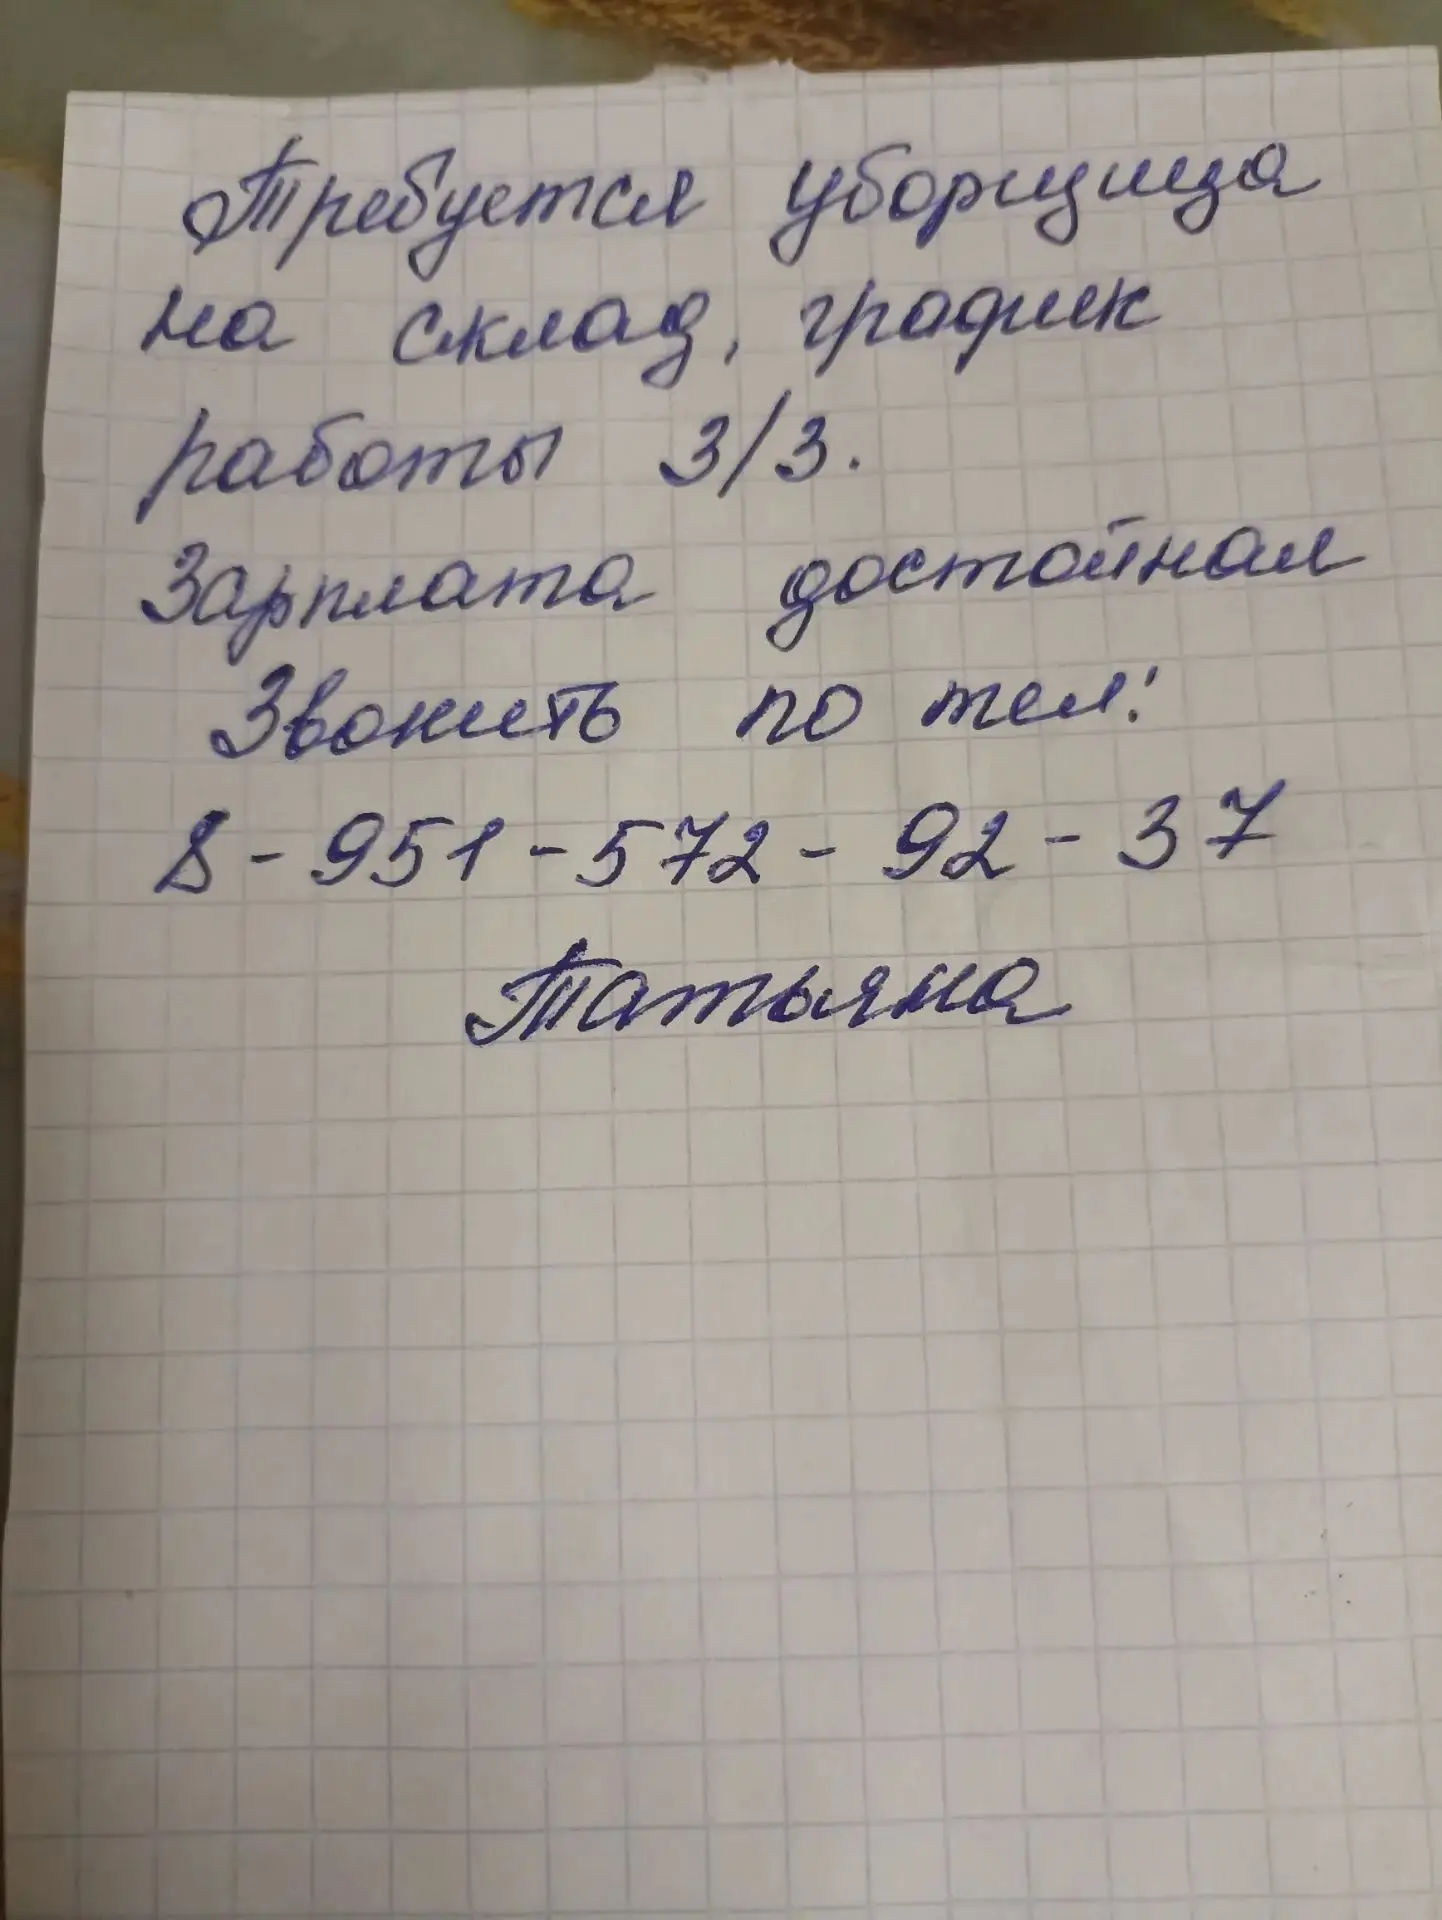 Требуется уборщица
на склад, график
работы 3/3.
Зарплата достойная
Звонить по тел:
8-951-572-92-37
Татьяна